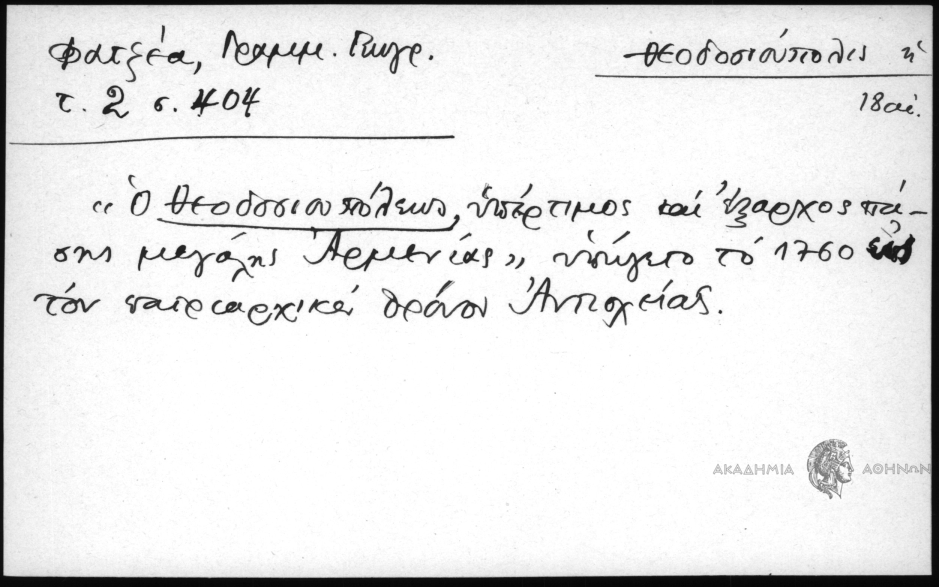 Φατζέα, Γραμμ. Γεωγρ.
τ. 2 σ. 404
Θεοδοσιούπολις ἡ
18 αἰ.
«Ὁ Θεοδοσιουπόλεως, ὑπέρτιμος καί ἔξαρχος πά-
σης μεγάλης Ἀρμενίας» ὑπήγετο τό 1760 εἰς
τόν πατριαρχικόν θρόνον Ἀντιοχείας.
ΑΚΑΔΗΜΙΑ ΑΘΗΝΩΝ